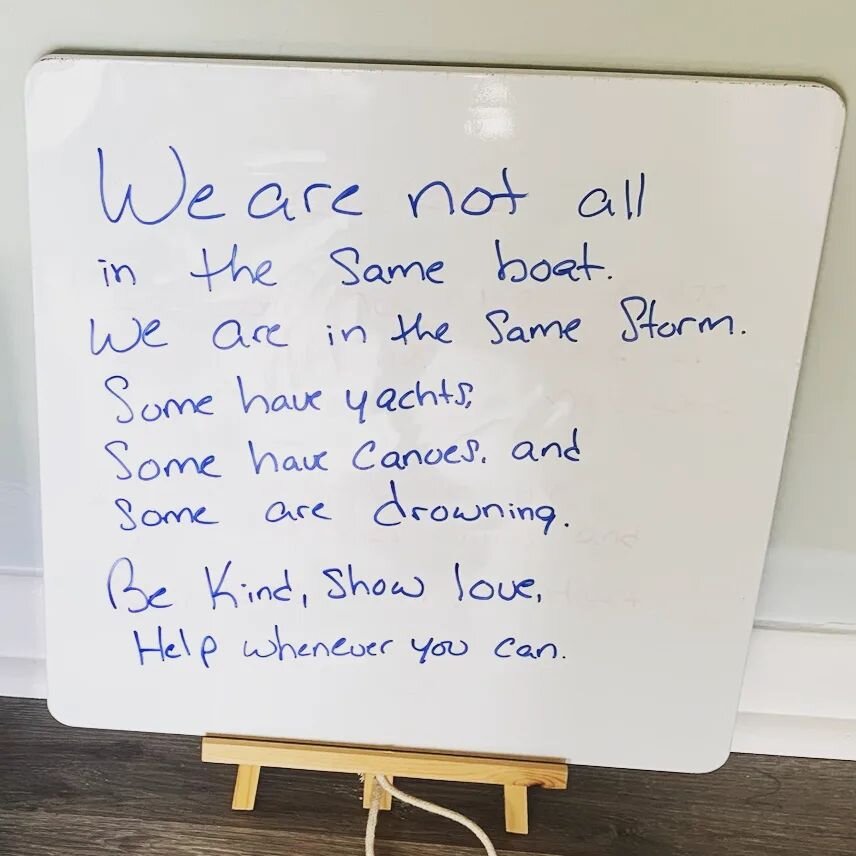 We are not all
in the same boat.
We are in the same storm.
Some have yachts,
Some have canoes, and
some are drowning.
Be Kind, show love,
Help whenever you can.